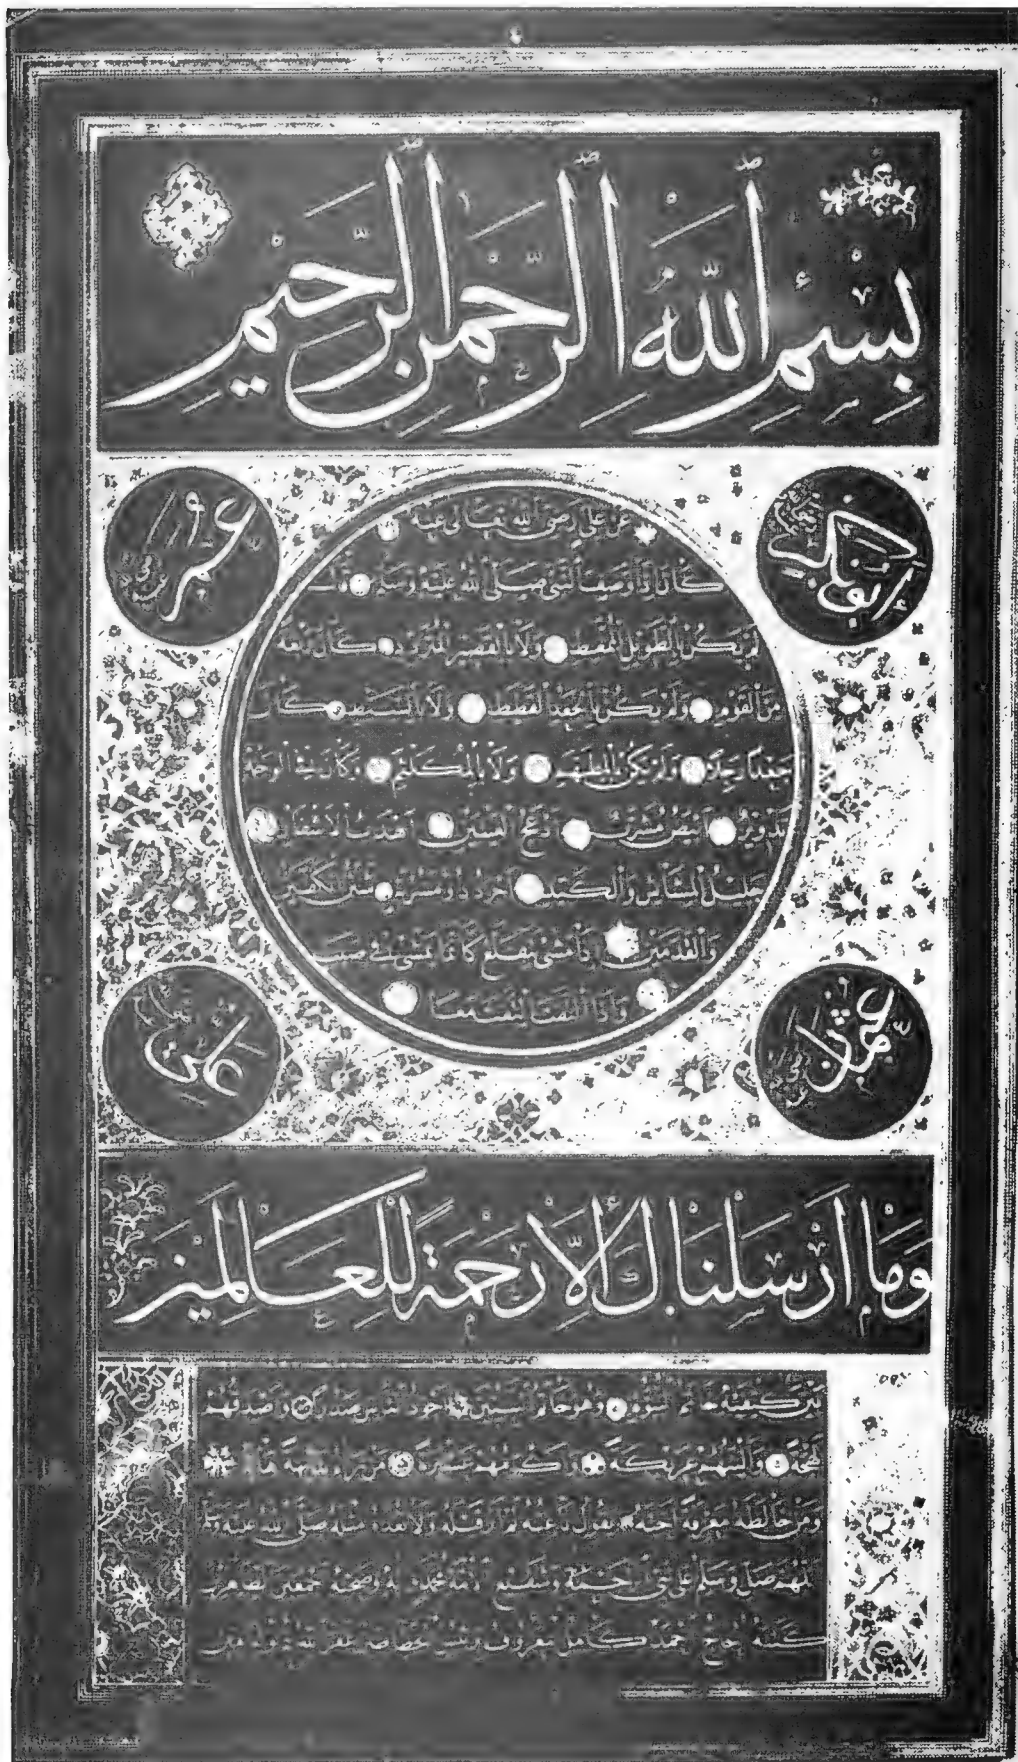 بِسْمِ اللَّهِ الرَّحْمَنِ الرَّحِيمِ
أبو بكر
عمر
عن علي رضي الله تعالى عنه
كان إذا وصف النبي صلى الله عليه وسلم قال
لم يكن بالطويل الممغط ولا بالقصير المتردد كان ربعة
من القوم ولم يكن بالجعد القطط ولا بالسبط كان
جعدا رجلا ولم يكن بالمطهم ولا بالمكلثم وكان في الوجه
تدوير أبيض مشرب أدعج العينين أهدب الأشفار
جليل المشاش والكتد أجرد ذو مسربة شثن الكفين
والقدمين إذا مشى يتقلع كأنما يمشي في صبب
وإذا التفت التفت معا
عثمان
علي
وَمَا أَرْسَلْنَاكَ إِلَّا رَحْمَةً لِلْعَالَمِينَ
بين كتفيه خاتم النبوة وهو خاتم النبيين أجود الناس صدرا وأصدقهم
لهجة وألينهم عريكة وأكرمهم عشرة من رآه بديهة هابه
ومن خالطه معرفة أحبه يقول ناعته لم أر قبله ولا بعده مثله صلى الله عليه وسلم
اللهم صل وسلم على نبي الرحمة وشفيع الأمة محمد وآله وصحبه أجمعين
كتبه الحاج أحمد كامل المعروف برئيس الخطاطين غفر الله ذنوبه